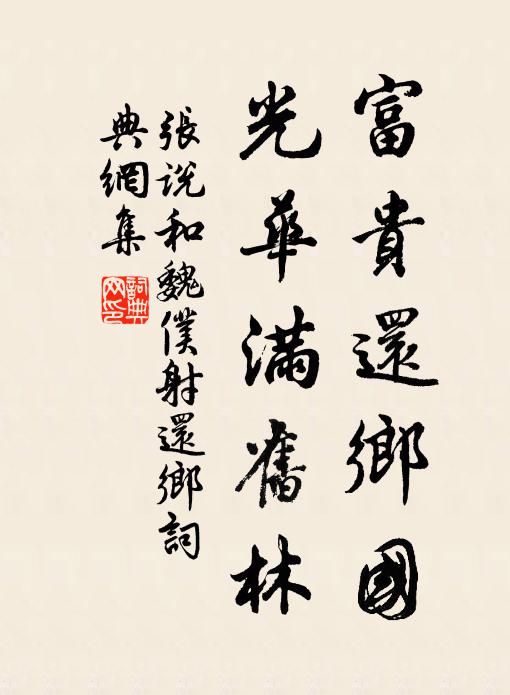 富貴還鄉國
光華滿舊林
張說和魏僕射還鄉詞
典網集
詞典
网印